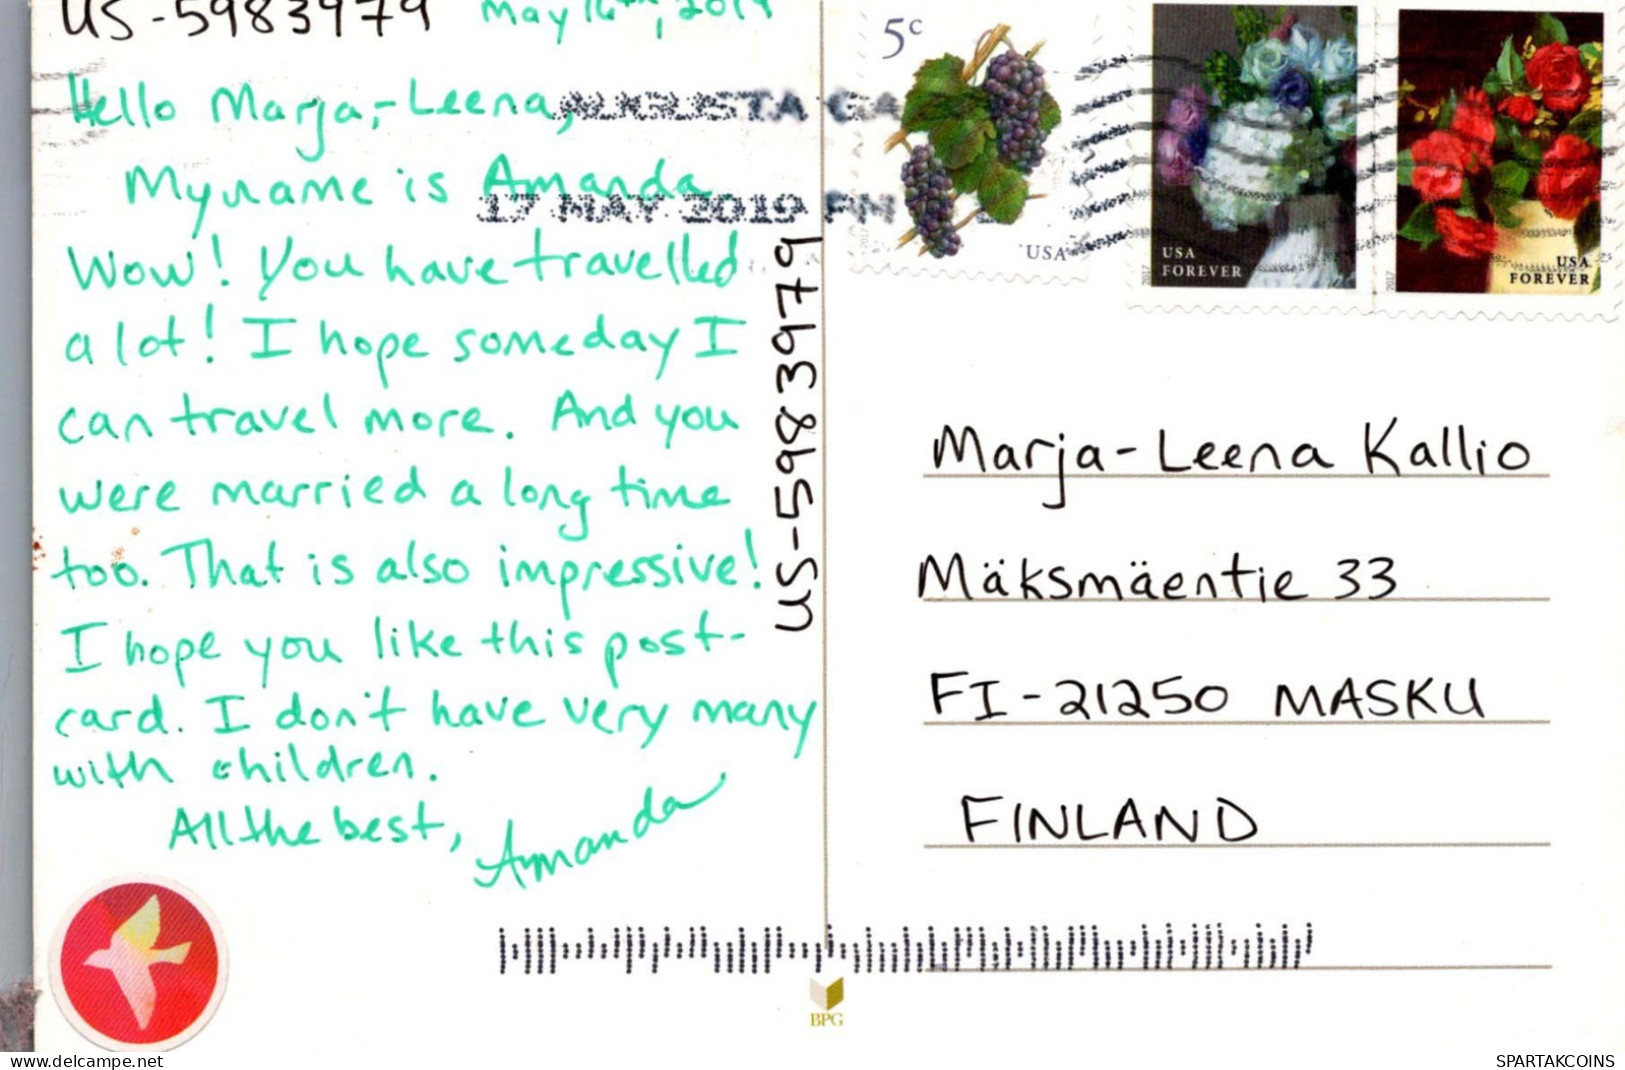 US-5983979 May 16th, 2019
Hello Marja-Leena,
My name is Amanda
Wow! You have travelled
a lot! I hope someday I
can travel more. And you
were married a long time
too. That is also impressive!
I hope you like this post-
card. I don't have very many
with children.
All the best,
Amanda
US-5983979
AUGUSTA GA
17 MAY 2019 PM
5c
USA
2017
USA
FOREVER
2017
USA
FOREVER
2017
Marja-Leena Kallio
Mäksmäentie 33
FI-21250 MASKU
FINLAND
BPG
www.delcampe.net
SPARTAKCOINS